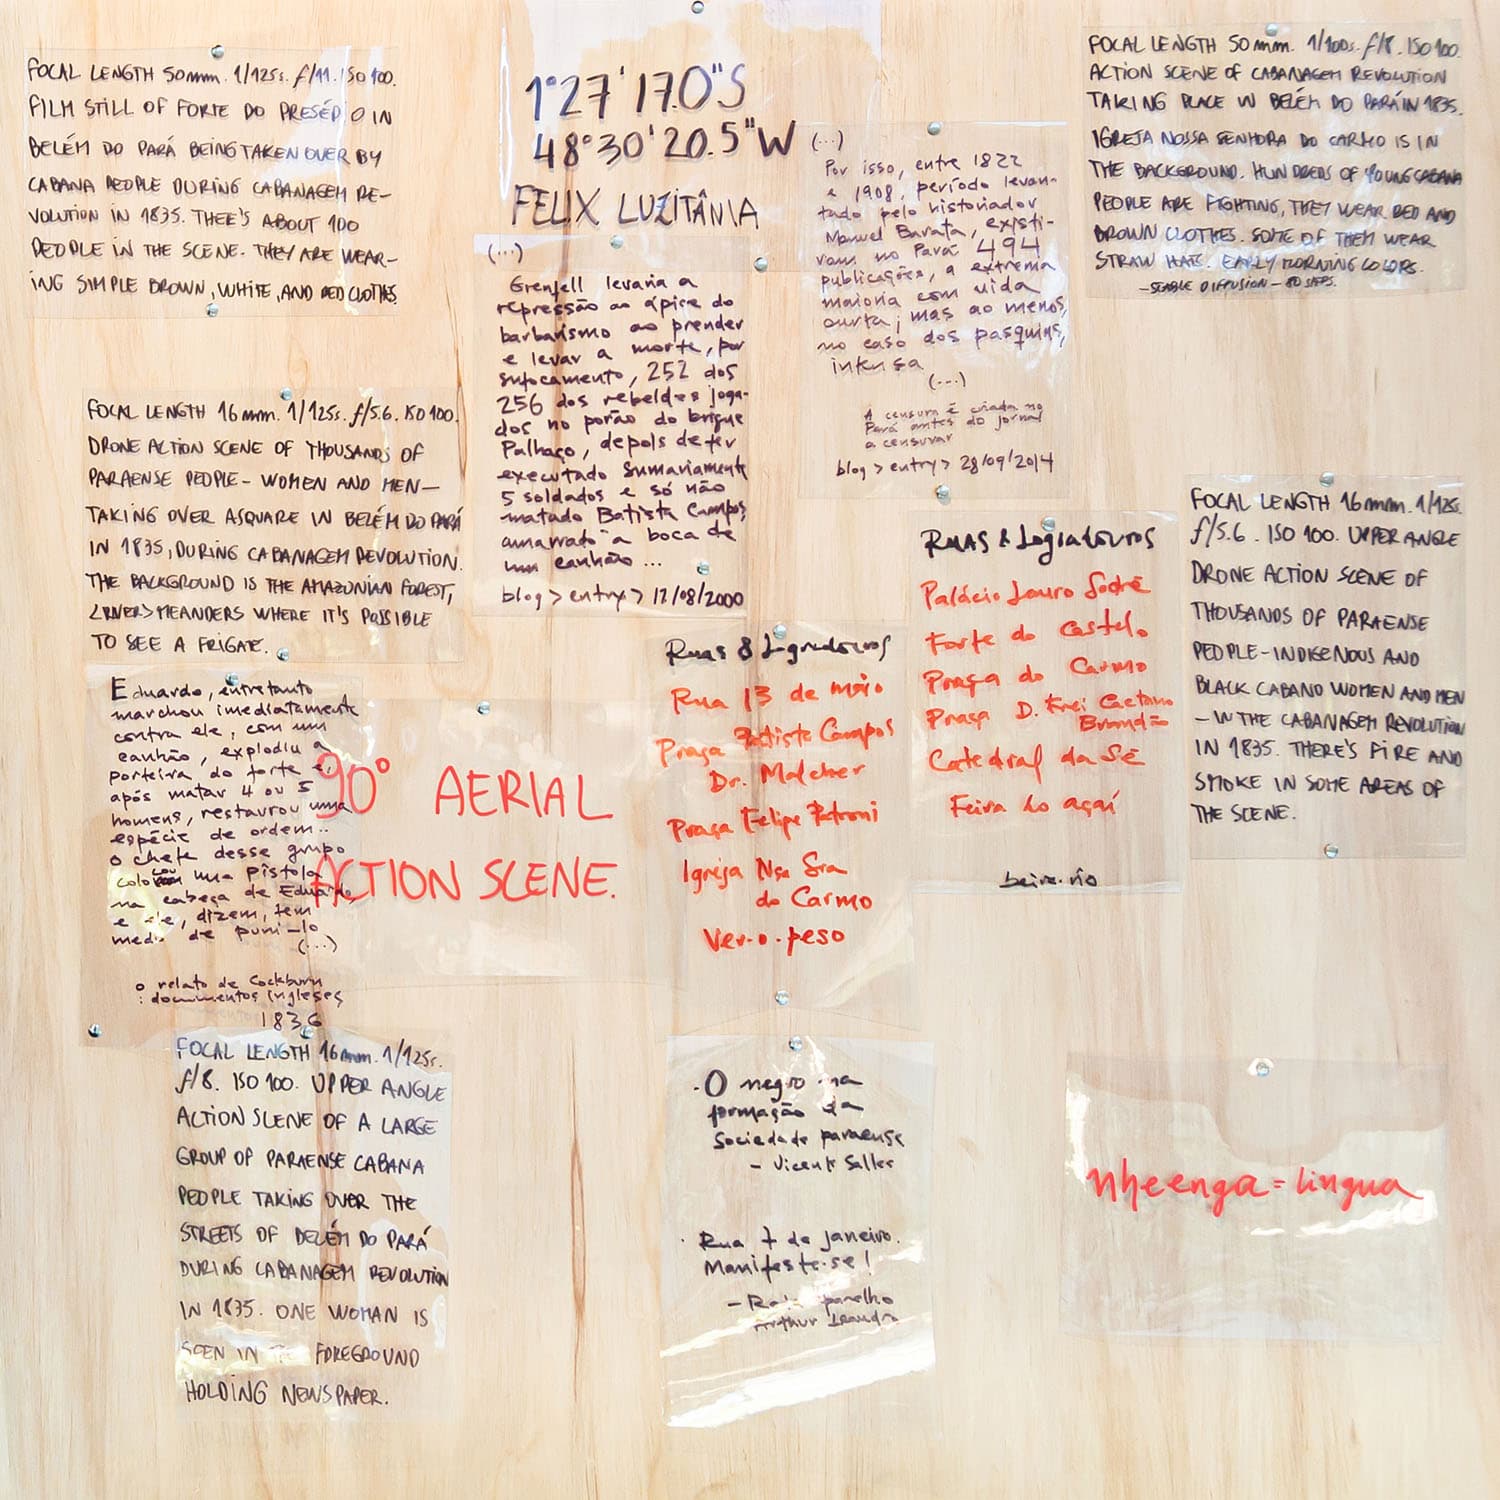 FOCAL LENGTH 50mm. 1/125s. f/11. ISO 100.
FILM STILL OF FORTE DO PRESÉPIO IN
BELÉM DO PARÁ BEING TAKEN OVER BY
CABANA PEOPLE DURING CABANAGEM RE-
VOLUTION IN 1835. THEE'S ABOUT 100
PEOPLE IN THE SCENE. THEY ARE WEAR-
ING SIMPLE BROWN, WHITE, AND RED CLOTHES.
1°27'17.0"S
48°30'20.5"W
FELIX LUZITÂNIA
(...)
Grenfell levaria a
repressão ao ápice do
barbarismo ao prender
e levar a morte, por
sufocamento, 252 dos
256 dos rebeldes joga-
dos no porão do brigue
Palhaço, depois de ter
executado sumariamente
5 soldados e só não
matado Batista Campos,
amarrato a boca de
um canhão ...
blog > entry > 12/08/2000
(...)
Por isso, entre 1822
e 1908, período levan-
tado pelo historiador
Manuel Barata, existi-
ram no Pará 494
publicações, a extrema
maioria com vida
curta; mas ao menos,
no caso dos pasquins,
intensa
(...)
A censura é criada no
Pará antes do jornal
a censurar
blog > entry > 28/09/2014
FOCAL LENGTH 50mm. 1/100s. f/8. ISO 100.
ACTION SCENE OF CABANAGEM REVOLUTION
TAKING PLACE IN BELÉM DO PARÁ IN 1835.
IGREJA NOSSA SENHORA DO CARMO IS IN
THE BACKGROUND. HUNDREDS OF YOUNG CABANA
PEOPLE ARE FIGHTING, THEY WEAR RED AND
BROWN CLOTHES. SOME OF THEM WEAR
STRAW HATS. EARLY MORNING COLORS.
- STABLE DIFFUSION - 80 STEPS.
FOCAL LENGTH 16mm. 1/125s. f/5.6. ISO 100.
DRONE ACTION SCENE OF THOUSANDS OF
PARAENSE PEOPLE - WOMEN AND MEN -
TAKING OVER A SQUARE IN BELÉM DO PARÁ
IN 1835, DURING CABANAGEM REVOLUTION.
THE BACKGROUND IS THE AMAZONIAN FOREST,
<RIVER> MEANDERS WHERE IT'S POSSIBLE
TO SEE A FRIGATE.
Eduardo, entretanto
marchou imediatamente
contra ele, com um
canhão, explodiu a
porteira do forte e,
após matar 4 ou 5
homens, restaurou uma
espécie de ordem..
o chefe desse grupo
colocou uma pistola
na cabeça de Eduardo,
e ele, dizem, tem
medo de puni-lo
(...)
o relato de Cockburn
: documentos ingleses
1836
90° AERIAL
ACTION SCENE.
Ruas & Logradouros
Rua 13 de maio
Praça Batista Campos
Dr. Malcher
Praça Felipe Patroni
Igreja Nsa Sra
do Carmo
Ver-o-peso
Ruas & Logradouros
Palácio Lauro Sodré
Forte do Castelo
Praça do Carmo
Praça D. Frei Caetano
Brandão
Catedral da Sé
Feira do açaí
beira-rio
FOCAL LENGTH 16mm. 1/125s.
f/5.6. ISO 100. UPPER ANGLE
DRONE ACTION SCENE OF
THOUSANDS OF PARAENSE
PEOPLE - INDIGENOUS AND
BLACK CABANO WOMEN AND MEN
- IN THE CABANAGEM REVOLUTION
IN 1835. THERE'S FIRE AND
SMOKE IN SOME AREAS OF
THE SCENE.
FOCAL LENGTH 16mm. 1/125s.
f/8. ISO 100. UPPER ANGLE
ACTION SCENE OF A LARGE
GROUP OF PARAENSE CABANA
PEOPLE TAKING OVER THE
STREETS OF BELÉM DO PARÁ
DURING CABANAGEM REVOLUTION
IN 1835. ONE WOMAN IS
SEEN IN THE FOREGROUND
HOLDING NEWSPAPER.
. O negro na
formação da
sociedade paraense
- Vicente Salles
. Rua 7 de janeiro.
Manifeste-se!
- parelho
Arthur Leandro
nheenga = língua